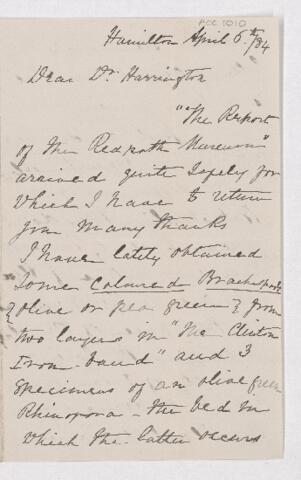 ACC 1010
Hamilton April 6th /84
Dear Dr. Harrington
"The Report
of the Redpath Museum"
arrived quite safely for
which I have to return
you many thanks
I have lately obtained
some coloured Brachiopods
{olive or pea green} from
two layers in "The Clinton
Iron-band" and 3
specimens of an olive green
Rhinopora - the bed in
which the latter occurs